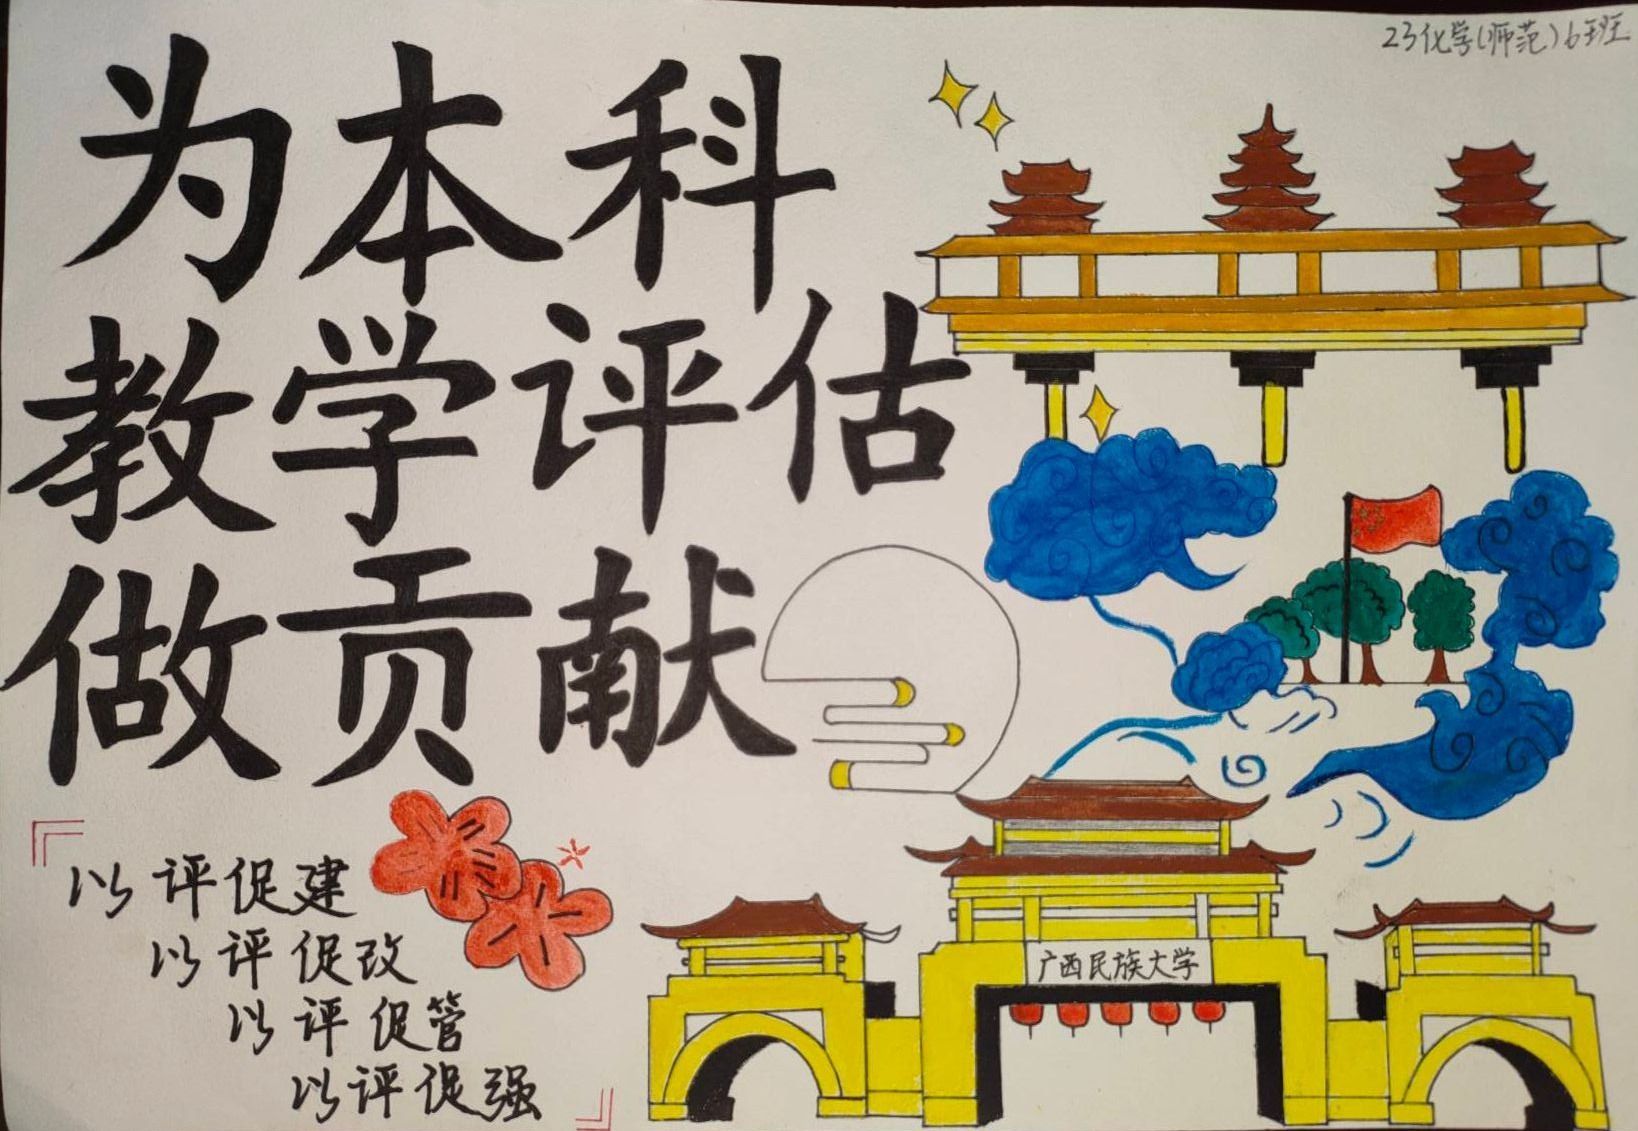 23化学(师范)6班
为本科
教学评估
做贡献
以评促建
以评促改
以评促管
以评促强
广西民族大学